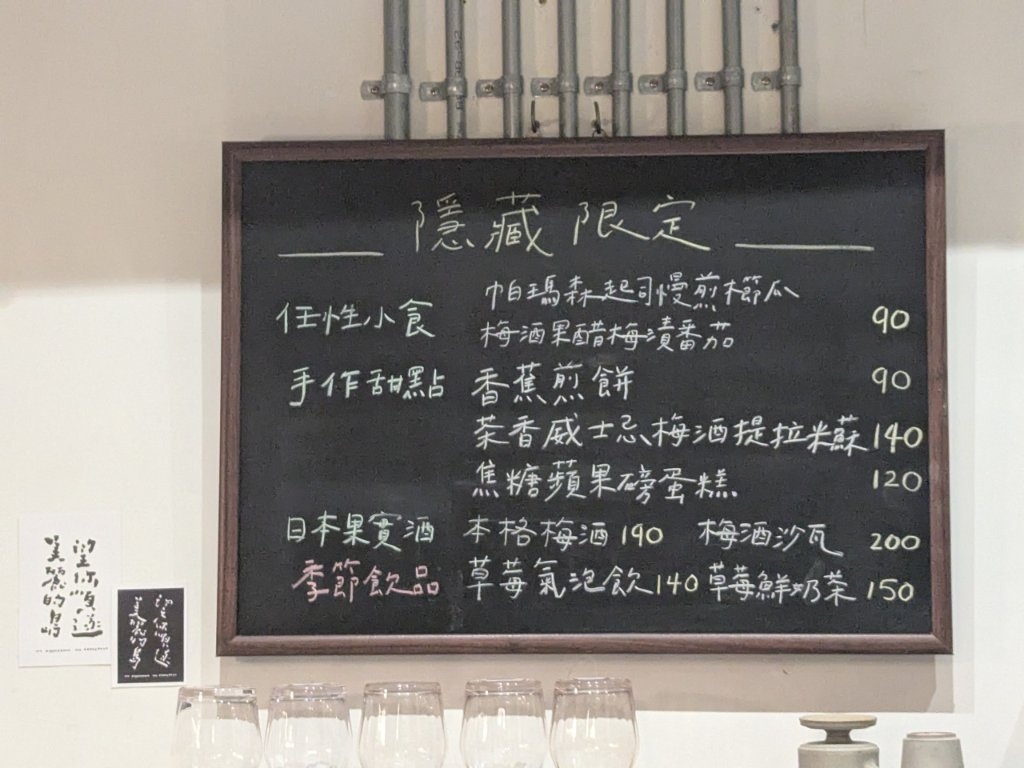 隱藏限定
任性小食 帕瑪森起司慢煎櫛瓜
梅酒果醋梅漬番茄 90
手作甜點 香蕉煎餅 90
茶香威士忌梅酒提拉米蘇 140
焦糖蘋果磅蛋糕 120
日本果實酒 本格梅酒 190 梅酒沙瓦 200
季節飲品 草莓氣泡飲 140 草莓鮮奶茶 150